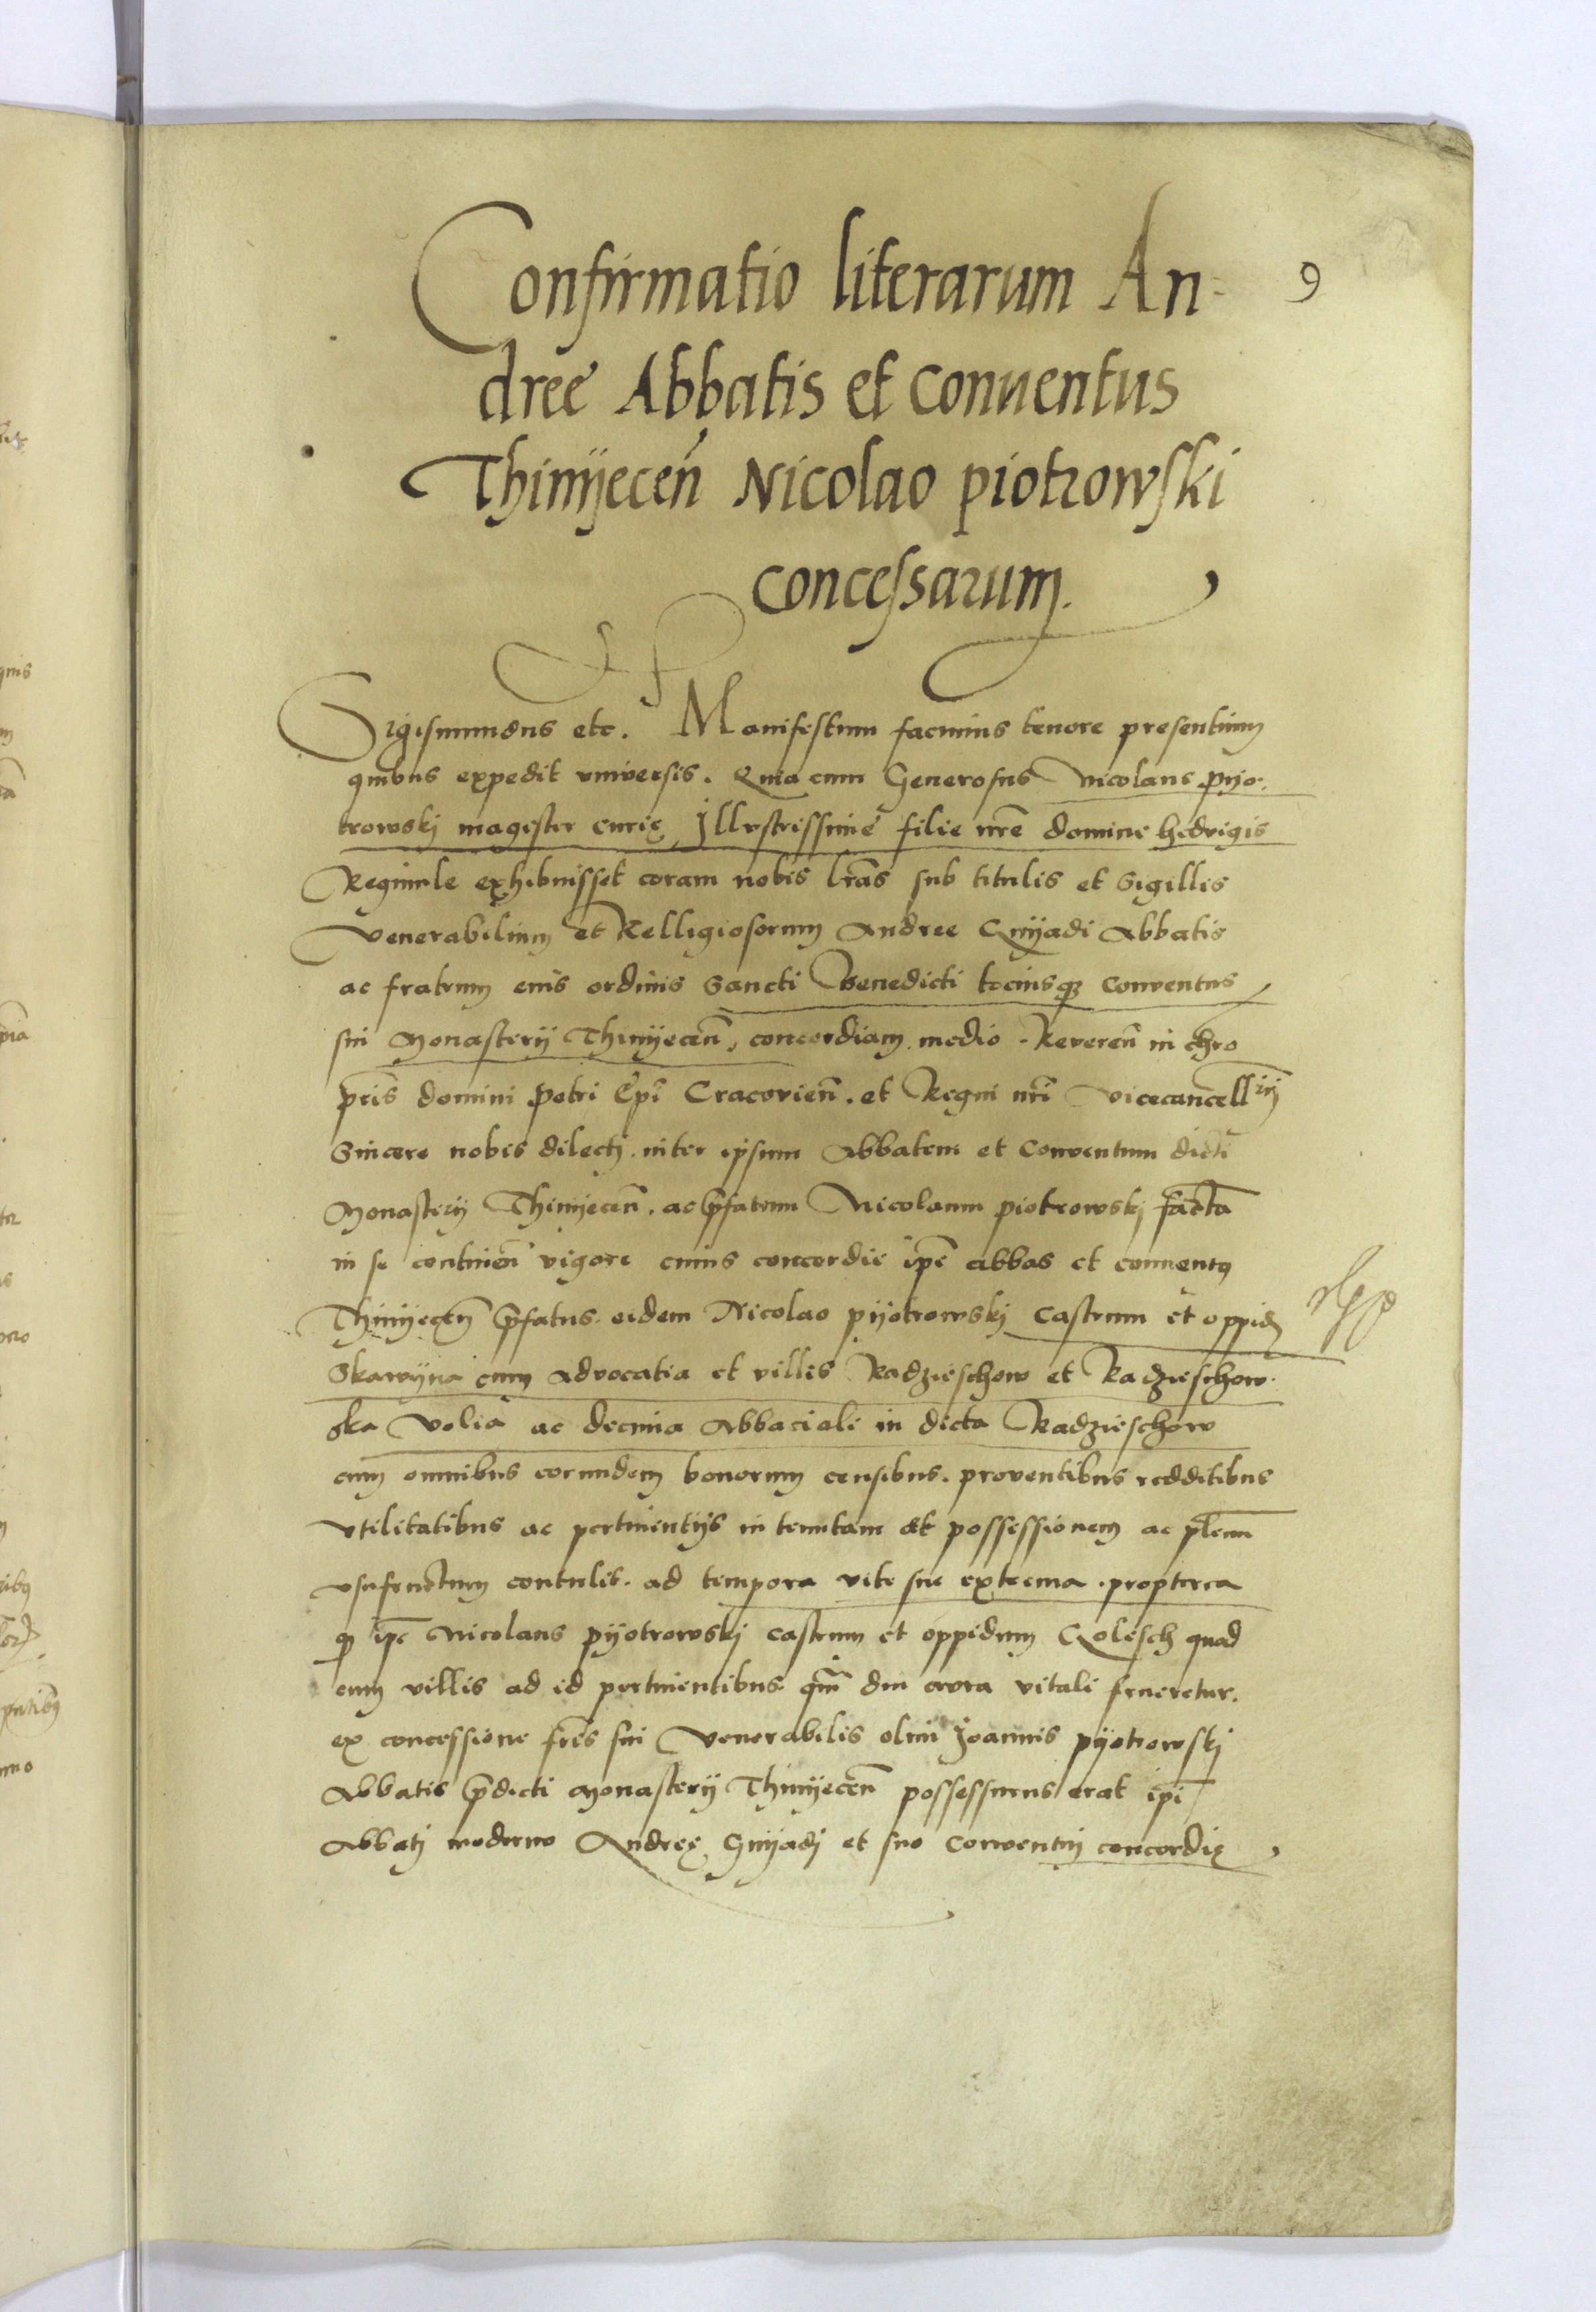 9
Confirmatio literarum An-
dree Abbatis et Conuentus
Thinÿeceñ Nicolao piotrowski
concessarum.
Sigismundus etc. Manifestum facimus tenore presentium
quibus expedit vniversis. Quia cum Generosus Nicolaus Pijo-
trowskj magister curię Illvstrissimę filie nr̃e domine hedvigis
Reginule exhibuisset coram nobis lr̃as sub titulis et Sigillis
Venerabilium et Relligiosorum Andree Gnijadi Abbatis
ac fratrum eius ordinis Sancti Benedicti tociusqȝ Conventus
sui Monasterij Thinijeceñ, concordiam medio Revereñ in chro
pr̃is domini Petri Ep̃i Cracovieñ. et Regni nr̃i Vicecancellrij
Sincere nobis dilectj. inter ipsum Abbatem et Conventum dicti
Monasterij Thinijeceñ. ac p̃fatum Nicolaum piotrowskj facta
in se contineñ vigore cuius concordie ip̃e abbas et conuentꝰ
Thinijeceñ p̃fatus. eidem Nicolao pijotrowskj Castrum et oppid
Skawijna cum advocatia et villis Radzieschow et Radzieschow-
ska Volia ac decima Abbaciali in dicta Radzieschow
cum omnibus eorundem bonorum censibus. proventibus redditibus
vtilitatibus ac pertinentijs in tenutam et possessionem ac plenũ
vsufructum contulis. ad tempora vite sue extrema. propterea
q ip̃e Nicolaus pijotrowskj castrum et oppidum Qolesch quod
cum villis ad id pertinentibus dm aura vitali frueretur.
ex concessione fr̃is sui Venerabilis olim Joannis pijotrowskj
Abbatis p̃dicti Monasterij Thinijeceñ possessurus erat ip̃i
Abbatj moderno Andreę Gnijadj et suo Conventuj concordię